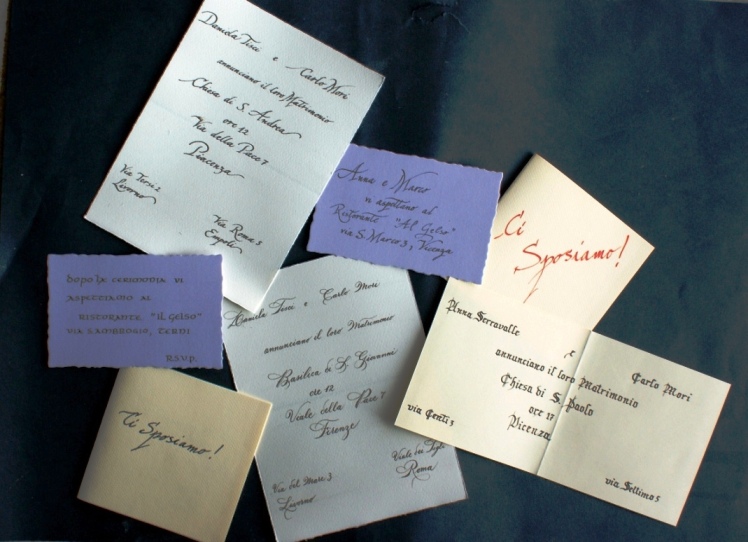 Daniela Tisci e Carlo Mori
annunciano il loro Matrimonio
Chiesa di S. Andrea
ore 12
Via della Pace 7
Piacenza
Via Tersi 2
Livorno
Via Roma 3
Empoli
Anna e Marco
vi aspettano al
Ristorante "Al Gelso"
via S. Marco 3, Vicenza
Ci
Sposiamo!
Dopo la cerimonia vi
aspettiamo al
ristorante "il gelso"
via S.Ambrogio, Terni
R.S.V.P.
Daniela Tisci e Carlo Mori
annunciano il loro Matrimonio
Basilica di S. Giovanni
ore 12
Viale della Pace 7
Firenze
Via del Mare 3
Livorno
Viale dei Tigli
Roma
Anna Serravalle
e
Carlo Mori
annunciano il loro Matrimonio
Chiesa di S. Paolo
ore 17
Vicenza
via Centi 5
via Settimo 5
Ci Sposiamo!